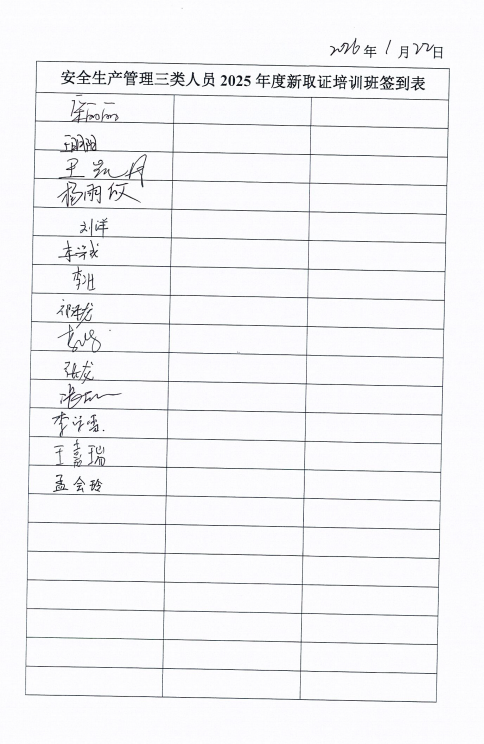 2026年1月22日
安全生产管理三类人员2025年度新取证培训班签到表
梁丽丽
王明阳
王凯丹
杨雨欣
刘洋
李兴成
李壮
祁泽龙
张龙
李雪
王嘉瑞
孟会玲